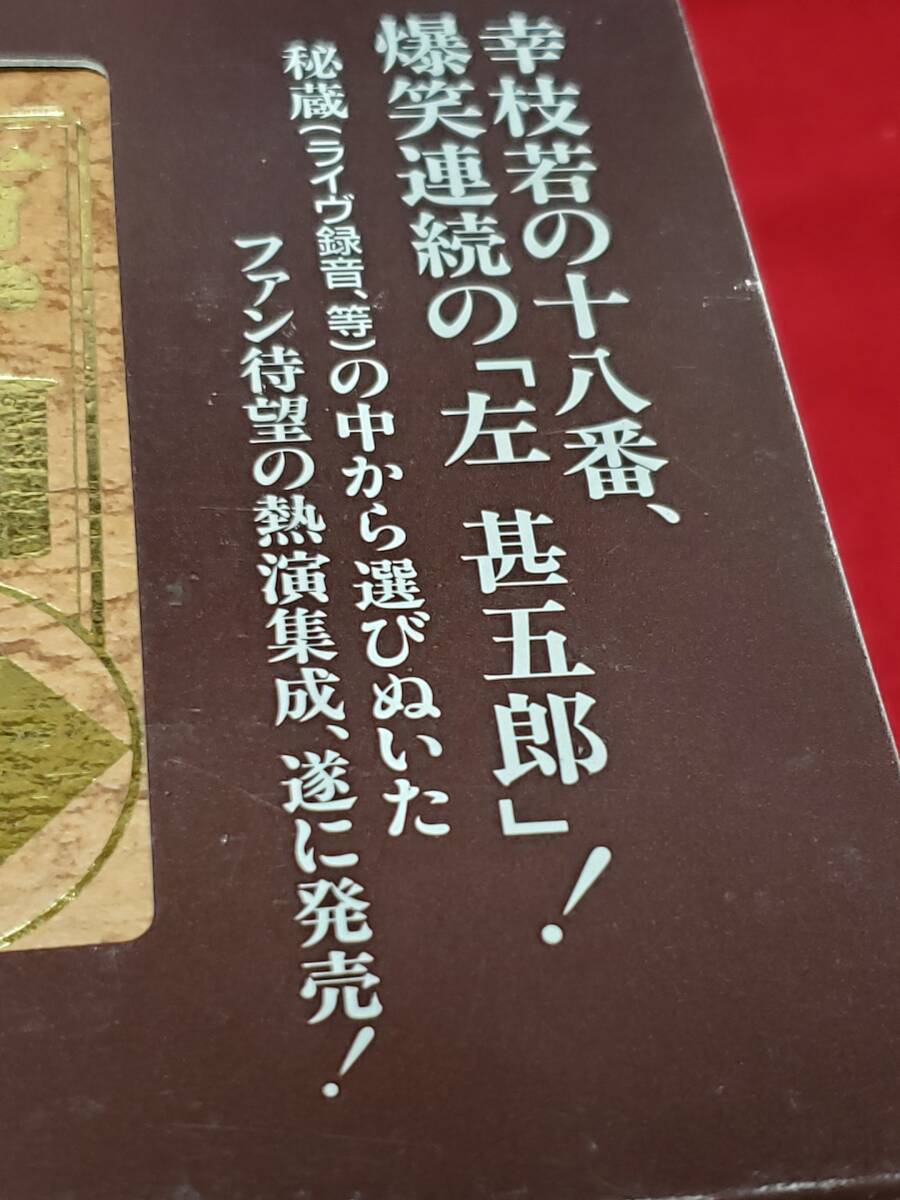 幸枝若の十八番、
爆笑連続の「左 甚五郎」!
秘蔵(ライヴ録音、等)の中から選びぬいた
ファン待望の熱演集成、遂に発売!